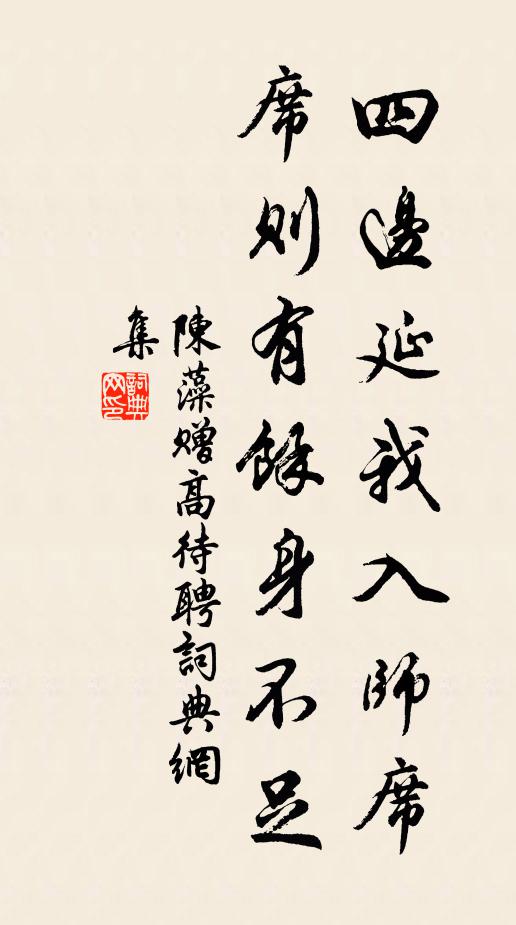 四邊延我入師席
席則有餘身不足
陳藻贈高待聘詞典網
集
詞典
网印